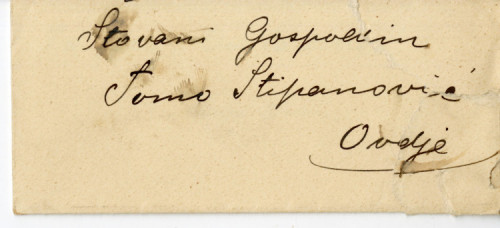 Štovani Gospodin
Tomo Stipanović
Ovdje